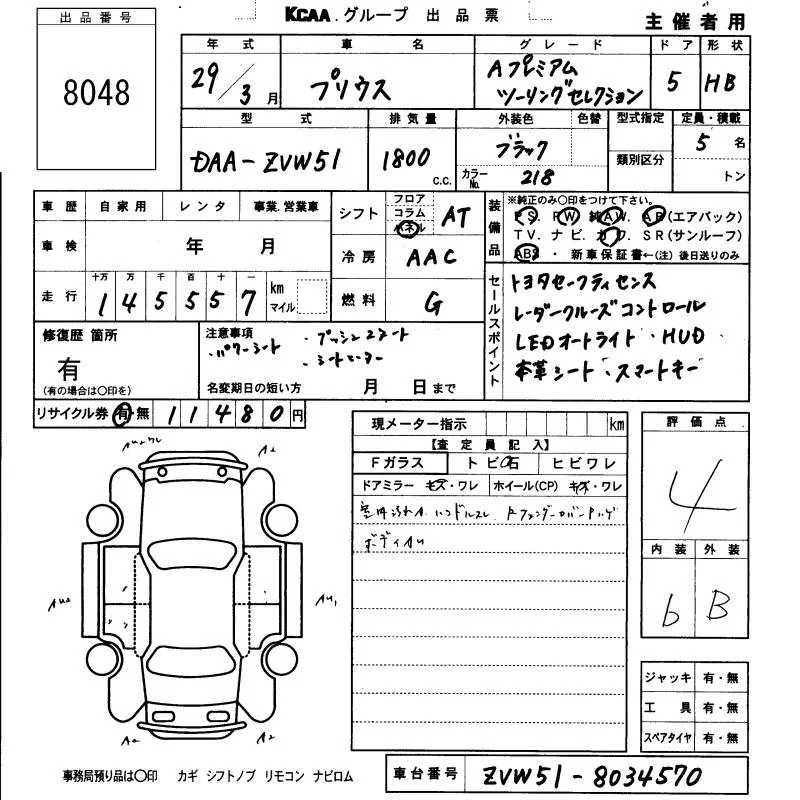 出品番号
KCAA.グループ 出品票
主催者用
8048
年式 車名 グレード ドア 形状
29/3月 プリウス Aプレミアム ツーリングセレクション 5 HB
型式 排気量 外装色 色替 型式指定 定員・積載
DAA-ZVW51 1800 c.c. ブラック カラーNo. 218 類別区分 5名 トン
車歴 自家用 レンタ 事業.営業車
車検 年 月
走行 十万 万 千 百 十 一
145557 km マイル
シフト フロア コラム パネル AT
冷房 AAC
燃料 G
装備品
※純正のみ○印をつけて下さい。
P S. P W 純 A W. A B(エアバック)
T V. ナ ビ. カ ワ. S R(サンルーフ)
ABS ・ 新車保証書←(注)後日送りのみ
セールスポイント
トヨタセーフティセンス
レーダークルーズコントロール
LEDオートライト・HUD
本革シート・スマートキー
修復歴 箇所
有
(有の場合は○印を)
注意事項
・パワーシート ・プッシュスタート
・シートヒーター
名変期日の短い方 月 日まで
リサイクル券 有・無 11480円
現メーター指示 km
【査定員記入】
Fガラス トビ石 ヒビワレ
ドアミラー キズ・ワレ ホイール(CP) キズ・ワレ
ハンドルスレ
ボディAU
評価点
4
内装 外装
b B
A2
AU2 AU1
A2 A2
ジャッキ 有・無
工具 有・無
スペアタイヤ 有・無
事務局預り品は○印 カギ シフトノブ リモコン ナビロム
車台番号 ZVW51-8034570